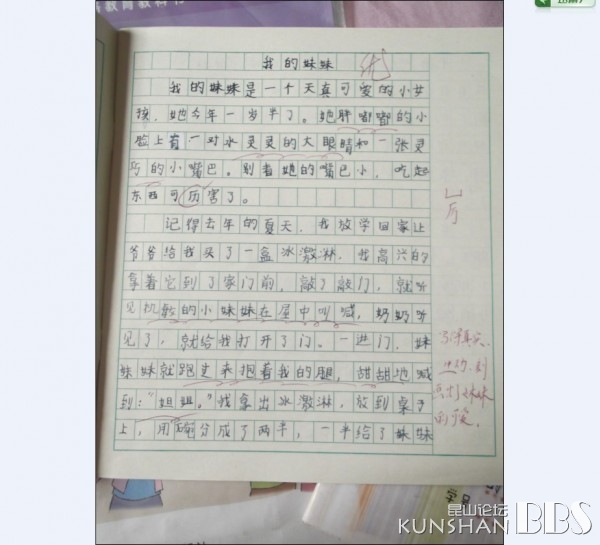 我的妹妹
优
我的妹妹是一个天真可爱的小女
孩,她今年一岁半了。她胖嘟嘟的小
脸上有一对水灵灵的大眼睛和一张灵
巧的小嘴巴。别看她的嘴巴小,吃起
东西可厉害了。
厉
记得去年的夏天,我放学回家让
爷爷给我买了一盒冰激淋,我高兴的
拿着它到了家门前,敲了敲门,就听
见机敏的小妹妹在屋中叫喊,奶奶听
见了,就给我打开了门。一进门,妹
妹妹就跑过来抱着我的腿,甜甜地喊
到:“姐姐。”我拿出冰激淋,放到桌子
上,用碗分成了两半,一半给了妹妹
生动,刻
妹妹
昆山论坛
KUNSHAN BBS